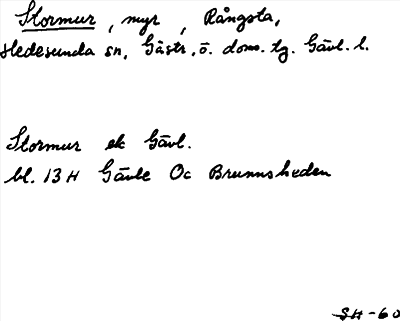 Stormur, myr, Rångsta,
Hedesunda sn, Gästr. ö. doms. tg. Gävl. l.
Stormur ek Gävl.
bl. 13 H Gävle Oc Brunnsheden
SH-60